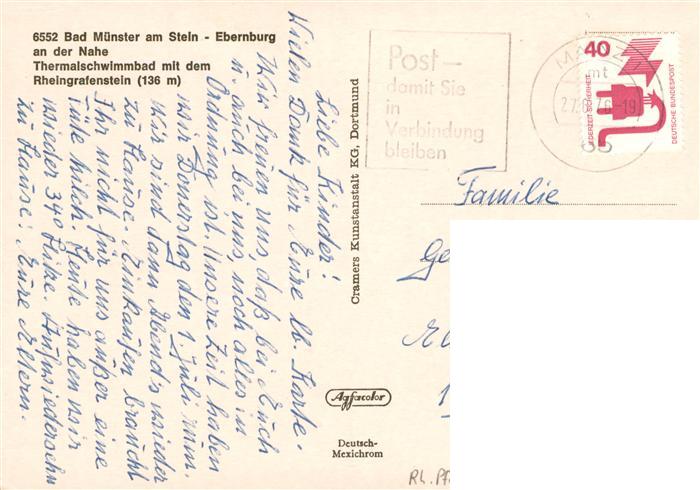 6552 Bad Münster am Stein - Ebernburg
an der Nahe
Thermalschwimmbad mit dem
Rheingrafenstein (136 m)
Liebe Kinder!
Vielen Dank für Eure lb. Karte.
Wir freuen uns, daß bei Euch
u. auch bei uns, noch alles in
Ordnung ist. Unsere Zeit haben
wir Donnerstag den 1. Juli um.
Wir sind dann Abends wieder
zu Hause. Einkaufen braucht
Ihr nicht für uns außer eine
Tüte Milch. Heute haben wir
wieder 34° Hitze. Aufwiedersehn
zu Hause! Eure Eltern.
Cramers Kunstanstalt KG, Dortmund
Agfacolor
Deutsch-
Mexichrom
Post –
damit Sie
in
Verbindung
bleiben
MAINZ
mt
65
40
JEDERZEIT SICHERHEIT
DEUTSCHE BUNDESPOST
Familie
Rh. Pf